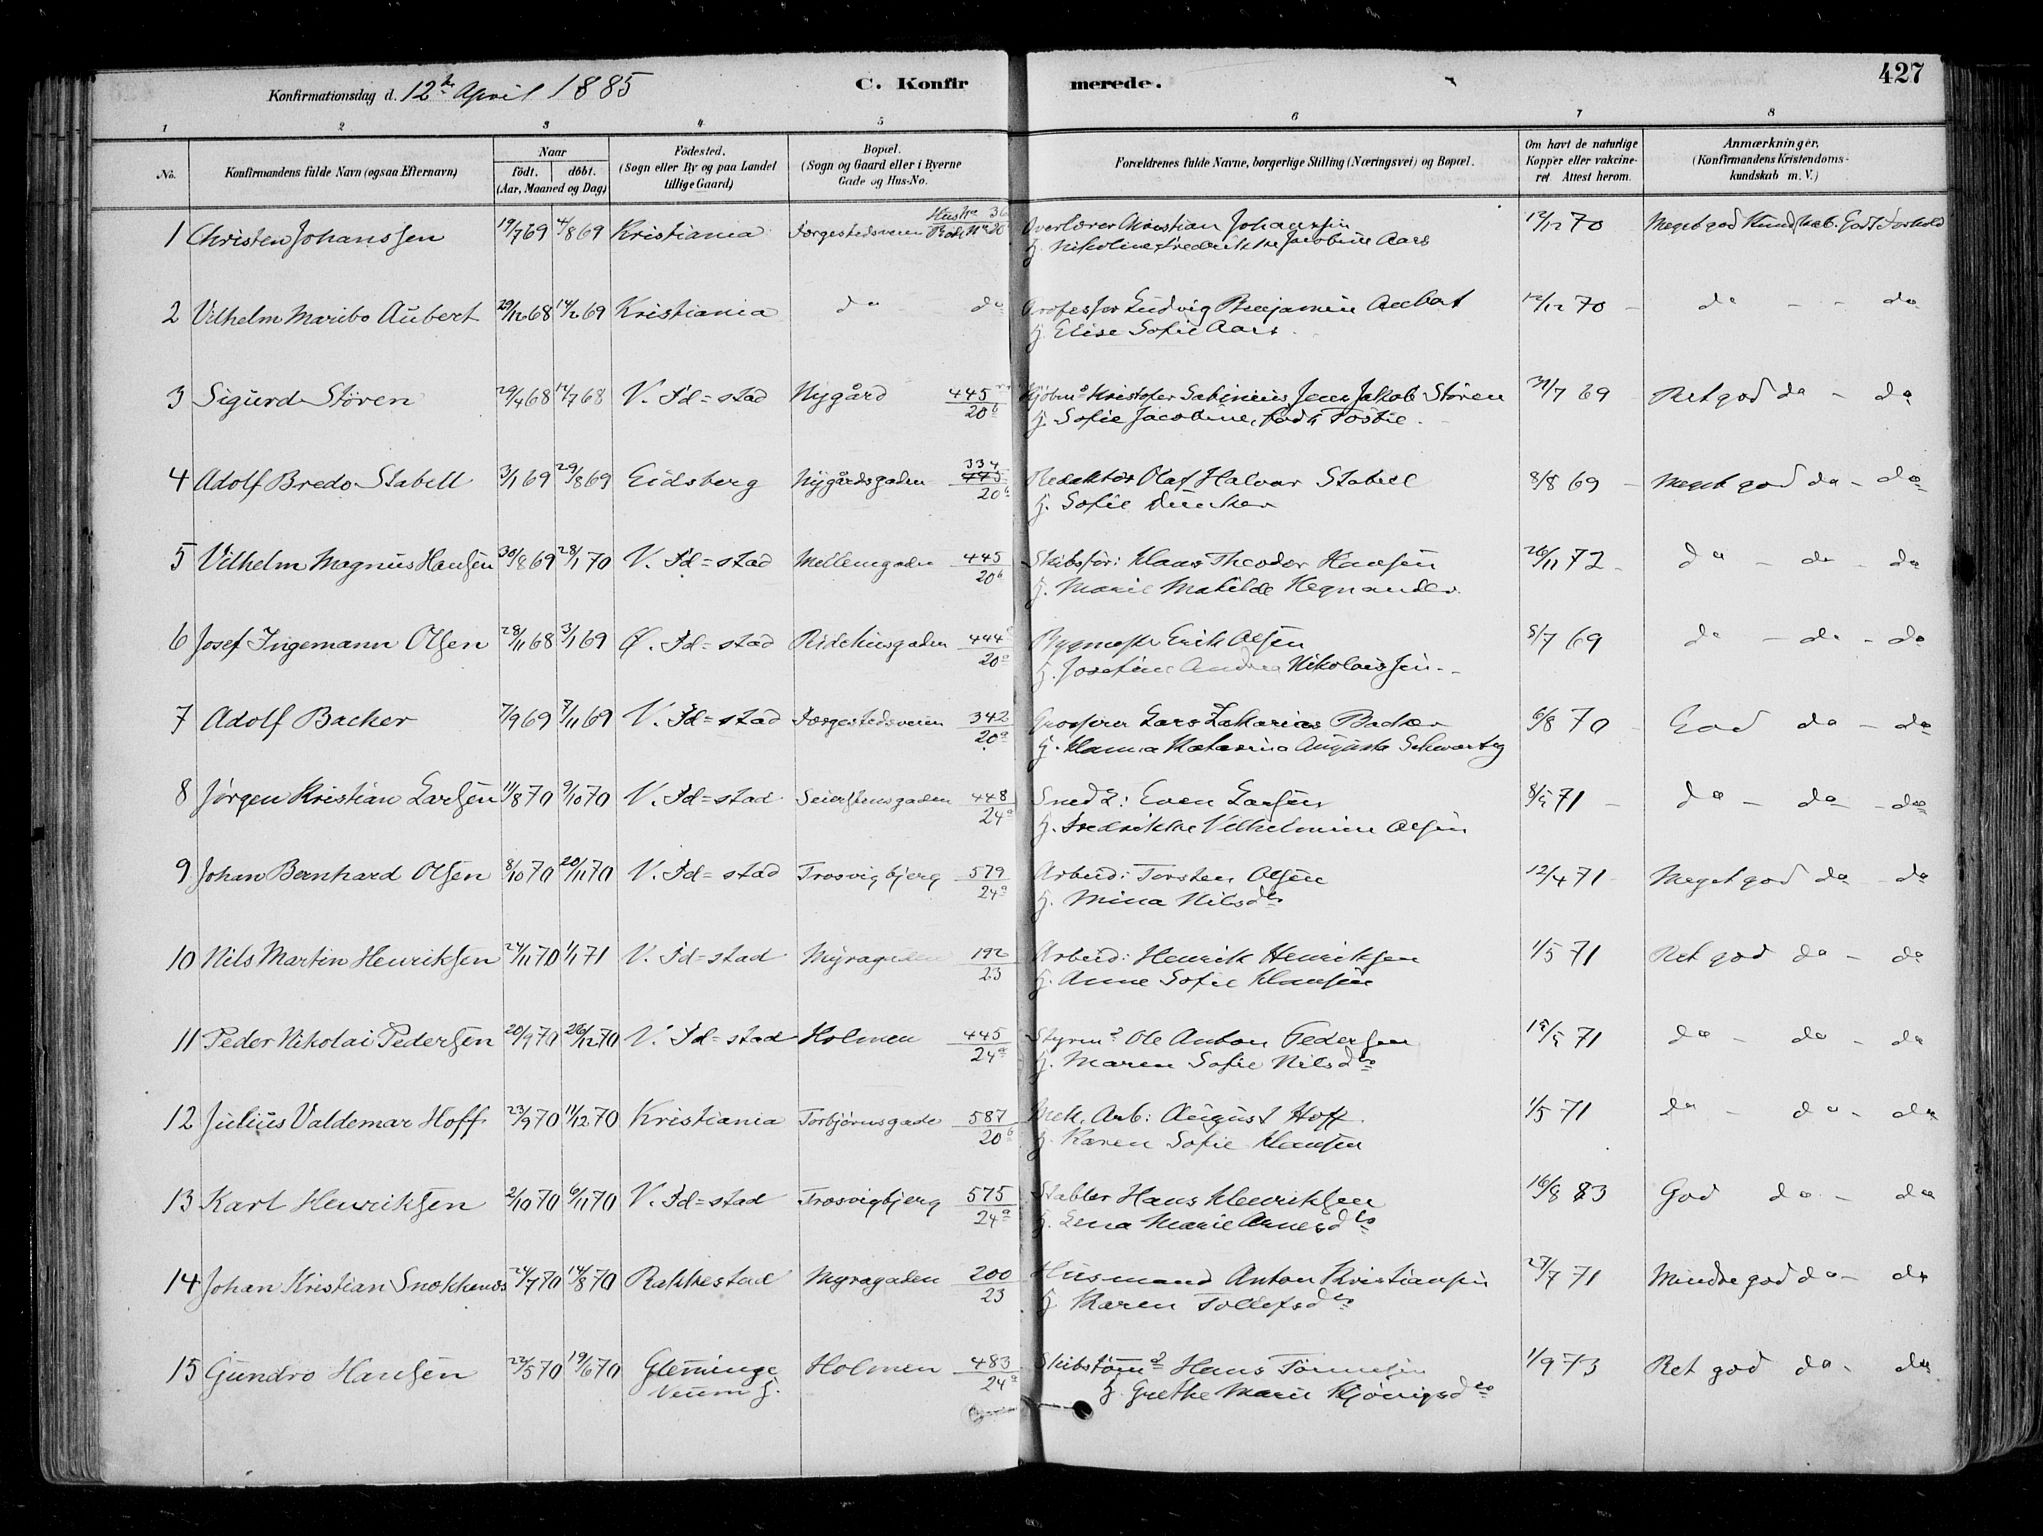 427
Konfirmationsdag d. 12te April 1885
C. Konfirmerede.
1 2 3 4 5 6 7 8
No.
Konfirmandens fulde Navn (ogsaa Efternavn)
Naar
født. døbt.
(Aar, Maaned og Dag)
Fødested.
(Sogn eller By og paa Landet
tillige Gaard)
Bopæl.
(Sogn og Gaard eller i Byerne
Gade og Hus-No.
Forældrenes fulde Navne, borgerlige Stilling (Næringsvei) og Bopæl.
Om havt de naturlige
Kopper eller vakcine-
ret. Attest herom.
Anmærkninger,
(Konfirmandens Kristendoms-
kundskab m. V.)
1 Christen Johanssen 19/7 69 4/8 69 Kristiania Færgestedsveien Overlærer Kristian Johanssen 12/12 70 Meget god Kundskab. Godt Forhold
H. Nikoline Fredrikke Jacobine Aars
2 Vilhelm Maribo Aubert 29/12 68 14/2 69 Kristiania do do Professor Ludvig Benjamin Aubert 12/12 70 do - - do
H. Elise Sofie Aars
3 Sigurd Støren 29/4 68 12/7 68 V. Fd=stad Nygård 445/20b Kjøbmd Kristofer Sabinius Jens Jakob Støren 31/7 69 Ret god do - do
H. Sofie Jacobine, født Tostie.
4 Adolf Bredo Stabell 3/1 69 29/8 69 Eidsberg Nygårdsgaden 334 445/20b Redaktør Olaf Halvor Stabell 8/8 69 Meget god do - do
H. Sofie Duncker
5 Vilhelm Magnus Hansen 30/8 69 28/1 70 V. Fd=stad Mellemgaden 445/20b Skibsfør: Klaus Theodor Hansen 26/11 72 do - do - do
H. Marie Matilde Hegnander
6 Josef Ingemann Olsen 28/11 68 3/1 69 Ø. Fd=stad Ridehusgaden 444/20a Bygmestr Erik Olsen 5/7 69 do - do - do
H. Josefine Andrea Nikolaissen
7 Adolf Backer 7/9 69 7/11 69 V. Fd=stad Færgestedsveien 342/20a Grosserer Lars Zakarias Backer 6/8 70 God do - do
H. Hanna Katarina Augusta Schwartz
8 Jørgen Kristian Larsen 11/8 70 9/10 70 V. Fd=stad Seierstensgaden 448/24a Sned: Even Larsen 71 do - do - do
H. Fredrikke Vilhelmine Olsen
9 Johan Bernhard Olsen 8/10 70 20/11 70 V. Fd=stad Trosvigbjerg 579/24a Arbeid: Torsten Olsen 12/4 71 Meget god do - do
H. Mina Nilsdtr
10 Nils Martin Henriksen 24/11 70 1/1 71 V. Fd=stad Myragaden 192/23 Arbeid: Henrik Henriksen 1/5 71 Ret god do - do
H. Anne Sofie Klausen
11 Peder Nikolai Pedersen 20/9 70 26/12 70 V. Fd=stad Holmen 445/24a Styrmd Ole Anton Pedersen 71 do - do - do
H. Maren Sofie Nilsdtr
12 Julius Valdemar Hoff 23/9 70 11/12 70 Kristiania Torbjørnsgade 587/20b Mek. Arb: August Hoff 1/5 71 do - do - do
H. Karen Sofie Klausen
13 Karl Henriksen 2/10 70 6/11 70 V. Fd=stad Trosvigbjerg 575/24a Stabler Hans Henriksen 16/8 83 God do - do
H. Lena Marie Arnesdtr
14 Johan Kristian Snekkenes 24/7 70 14/8 70 Rakkestad Myragaden 200/23 Husmand Anton Kristiansen 27/7 71 Mindre god do - do
H. Karen Tollefsdtr
15 Gundro Hansen 22/5 70 19/6 70 Glemminge Holmen 483/24a Skibstømd Hans Tønnesen 1/9 73 Ret god do - do
Veum g. H. Grethe Marie Kjønigsdtr